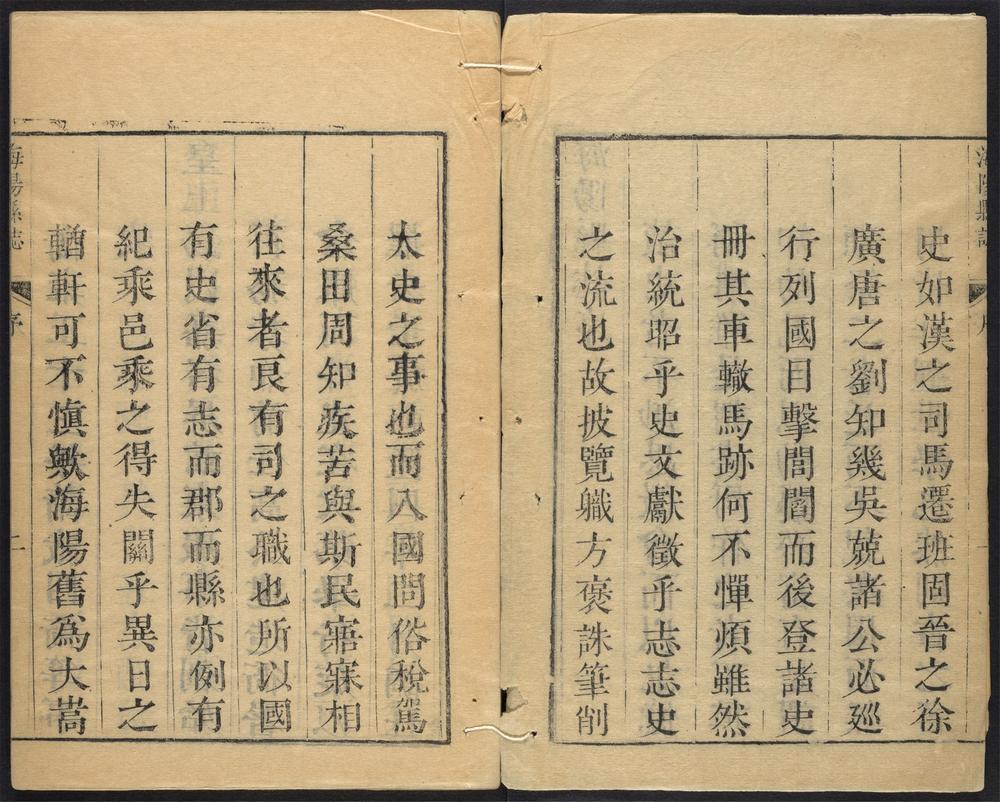 海陽縣誌
史如漢之司馬遷班固晉之徐
廣唐之劉知幾吳兢諸公必廵
行列國目擊閭閻而後登諸史
冊其車轍馬跡何不憚煩雖然
治統昭乎史文獻徵乎志志史
之流也故披覽職方褒誅筆削
太史之事也而入國問俗稅駕
桑田周知疾苦與斯民寤寐相
往來者良有司之職也所以國
有史省有志而郡而縣亦例有
紀乘邑乘之得失關乎異日之
輶軒可不慎歟海陽舊爲大嵩
海陽縣誌 序 二